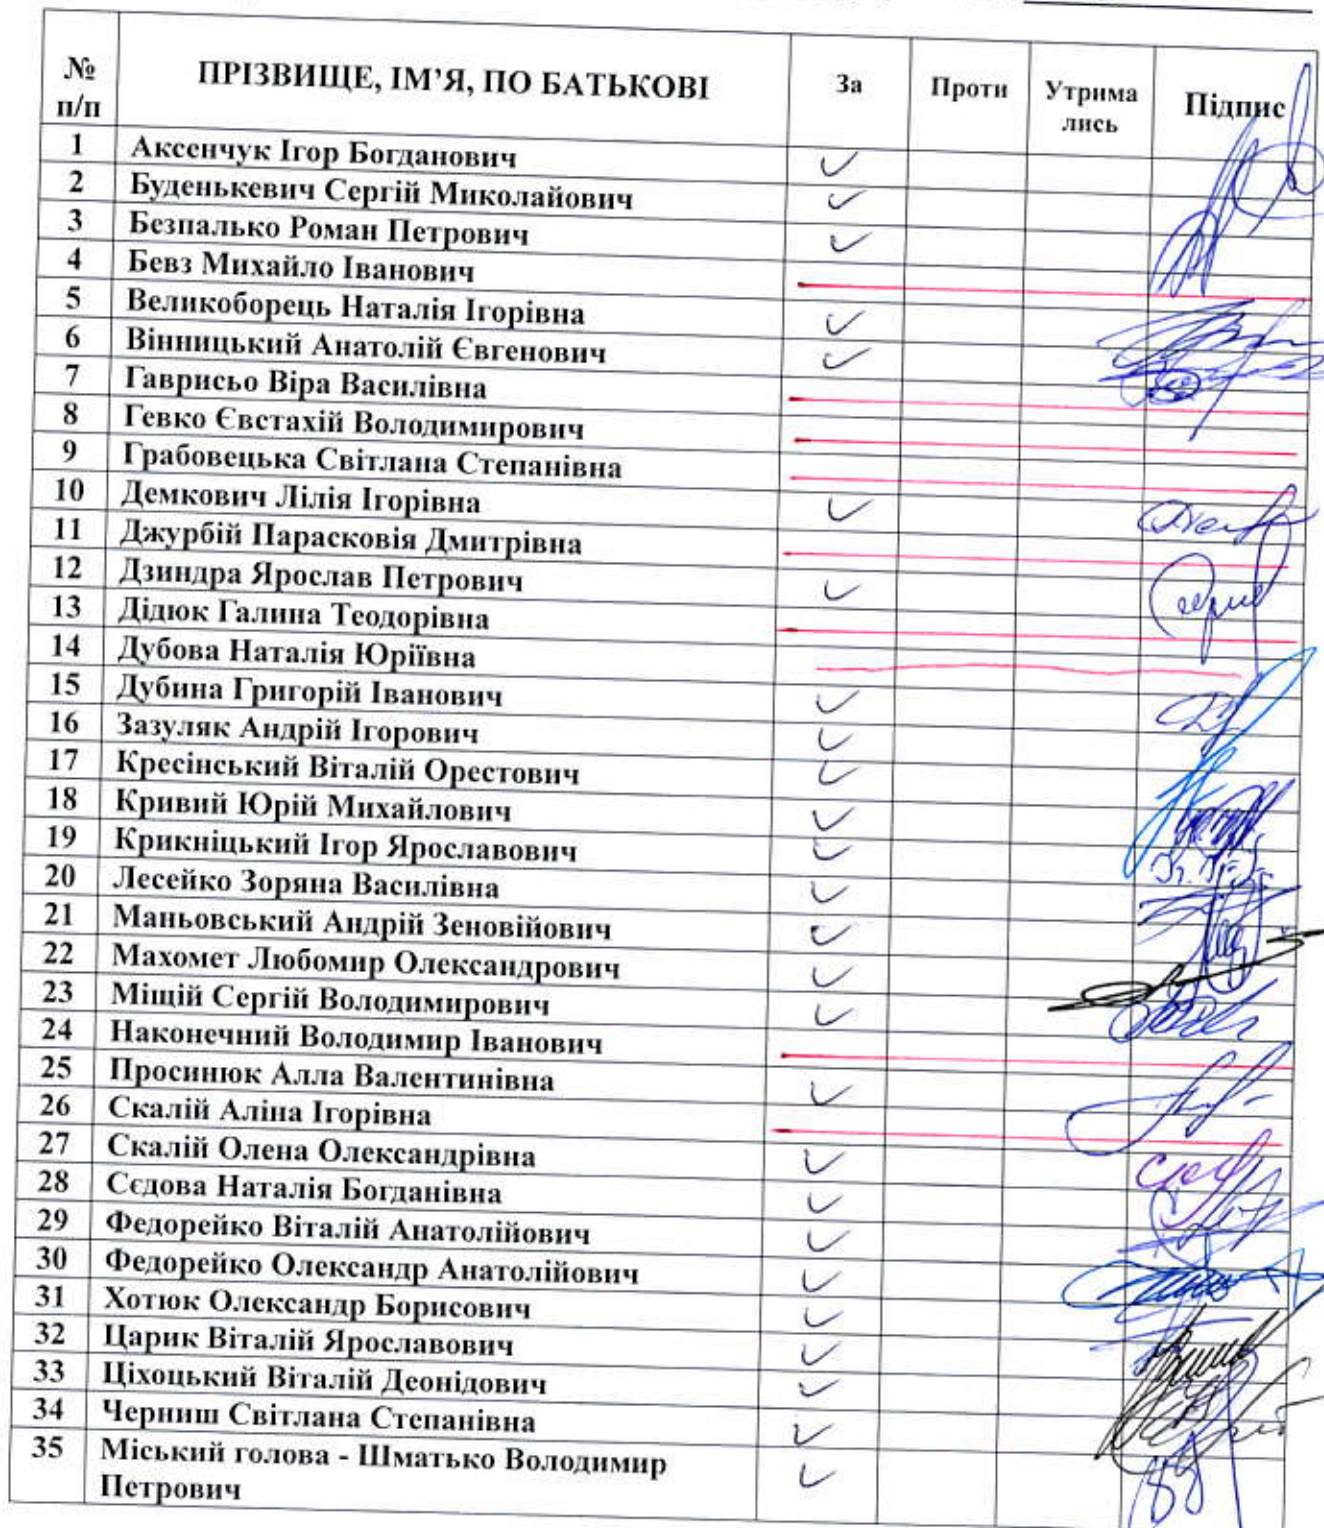 № п/п ПРІЗВИЩЕ, ІМ’Я, ПО БАТЬКОВІ За Проти Утрима лись Підпис
1 Аксенчук Ігор Богданович ✓
2 Буденькевич Сергій Миколайович ✓
3 Безпалько Роман Петрович ✓
4 Бевз Михайло Іванович
5 Великоборець Наталія Ігорівна ✓
6 Вінницький Анатолій Євгенович ✓
7 Гаврисьо Віра Василівна
8 Гевко Євстахій Володимирович
9 Грабовецька Світлана Степанівна
10 Демкович Лілія Ігорівна ✓
11 Джурбій Парасковія Дмитрівна
12 Дзиндра Ярослав Петрович ✓
13 Дідюк Галина Теодорівна
14 Дубова Наталія Юріївна
15 Дубина Григорій Іванович ✓
16 Зазуляк Андрій Ігорович ✓
17 Кресінський Віталій Орестович ✓
18 Кривий Юрій Михайлович ✓
19 Крикніцький Ігор Ярославович ✓
20 Лесейко Зоряна Василівна ✓
21 Маньовський Андрій Зеновійович ✓
22 Махомет Любомир Олександрович ✓
23 Міщій Сергій Володимирович ✓
24 Наконечний Володимир Іванович
25 Просинюк Алла Валентинівна ✓
26 Скалій Аліна Ігорівна
27 Скалій Олена Олександрівна ✓
28 Сєдова Наталія Богданівна ✓
29 Федорейко Віталій Анатолійович ✓
30 Федорейко Олександр Анатолійович ✓
31 Хотюк Олександр Борисович ✓
32 Царик Віталій Ярославович ✓
33 Ціхоцький Віталій Деонідович ✓
34 Черниш Світлана Степанівна ✓
35 Міський голова - Шматько Володимир ✓
Петрович